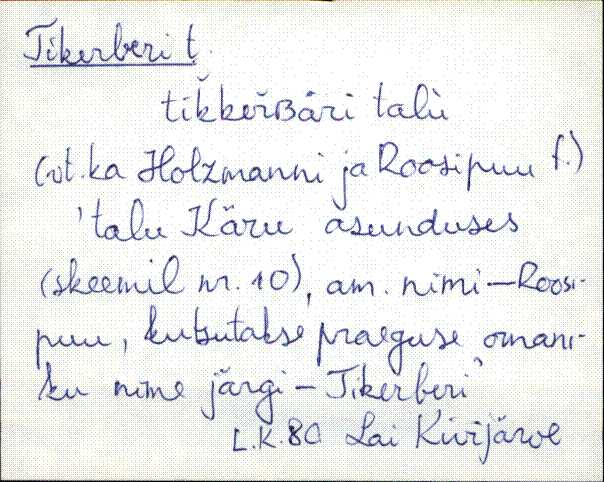 Tikerberi t.
tik̆keřʙäri talù
(vt. ka Holzmanni ja Roosipuu t.)
'talu Käru asunduses
(skeemil nr. 10), am. nimi – Roosi-
puu, kutsutakse praeguse omani-
ku nime järgi – Tikerberi'
L.K. 80 Lai Kivijärve